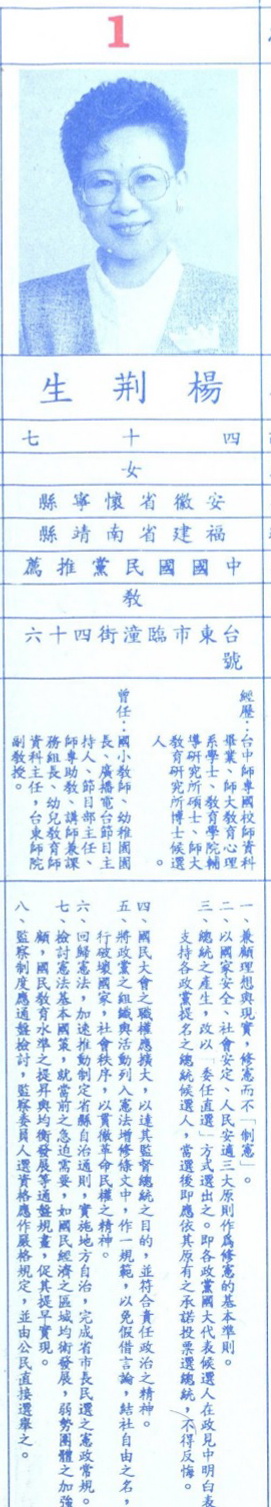 1
楊荆生
四十七
女
安徽省懷寧縣
福建省南靖縣
中國國民黨推薦
教
台東市臨潼街四十六
號
經歷：台中師專國校師資科
畢業、師大教育心理
系學士、教育學院輔
導研究所碩士、師大
教育研究所博士候選
人。
曾任：國小教師、幼稚園園
長、廣播電台節目主
持人、節目部主任、
師專助教、講師兼課
務組長、幼兒教育師
資科主任，台東師院
副教授。
一、兼顧理想與現實，修憲而不「制憲」。
二、以國家安全、社會安定、人民安適三大原則作爲修憲的基本準則。
三、總統之產生，改以「委任直選」方式選出之。即各政黨國大代表候選人在政見中明白表
支持各政黨提名之總統候選人，當選後即應依其原有之承諾投票選總統，不得反悔。
四、國民大會之職權應擴大，以達其監督總統之目的，並符合責任政治之精神。
五、將政黨之組織與活動列入憲法增修條文中，作一規範，以免假借言論，結社自由之名，
行破壞國家，社會秩序，以貫徹革命民權之精神。
六、回歸憲法，加速推動制定省縣自治通則，實施地方自治，完成省市長民選之憲政常規。
七、檢討憲法基本國策，就當前之急迫需要，如國民經濟之區域均衡發展，弱勢團體之加強
顧，國民教育水準之提昇與均衡發展等通盤規畫，促其提早實現。
八、監察制度應通盤檢討，監察委員人選資格應作嚴格規定，並由公民直接選舉之。